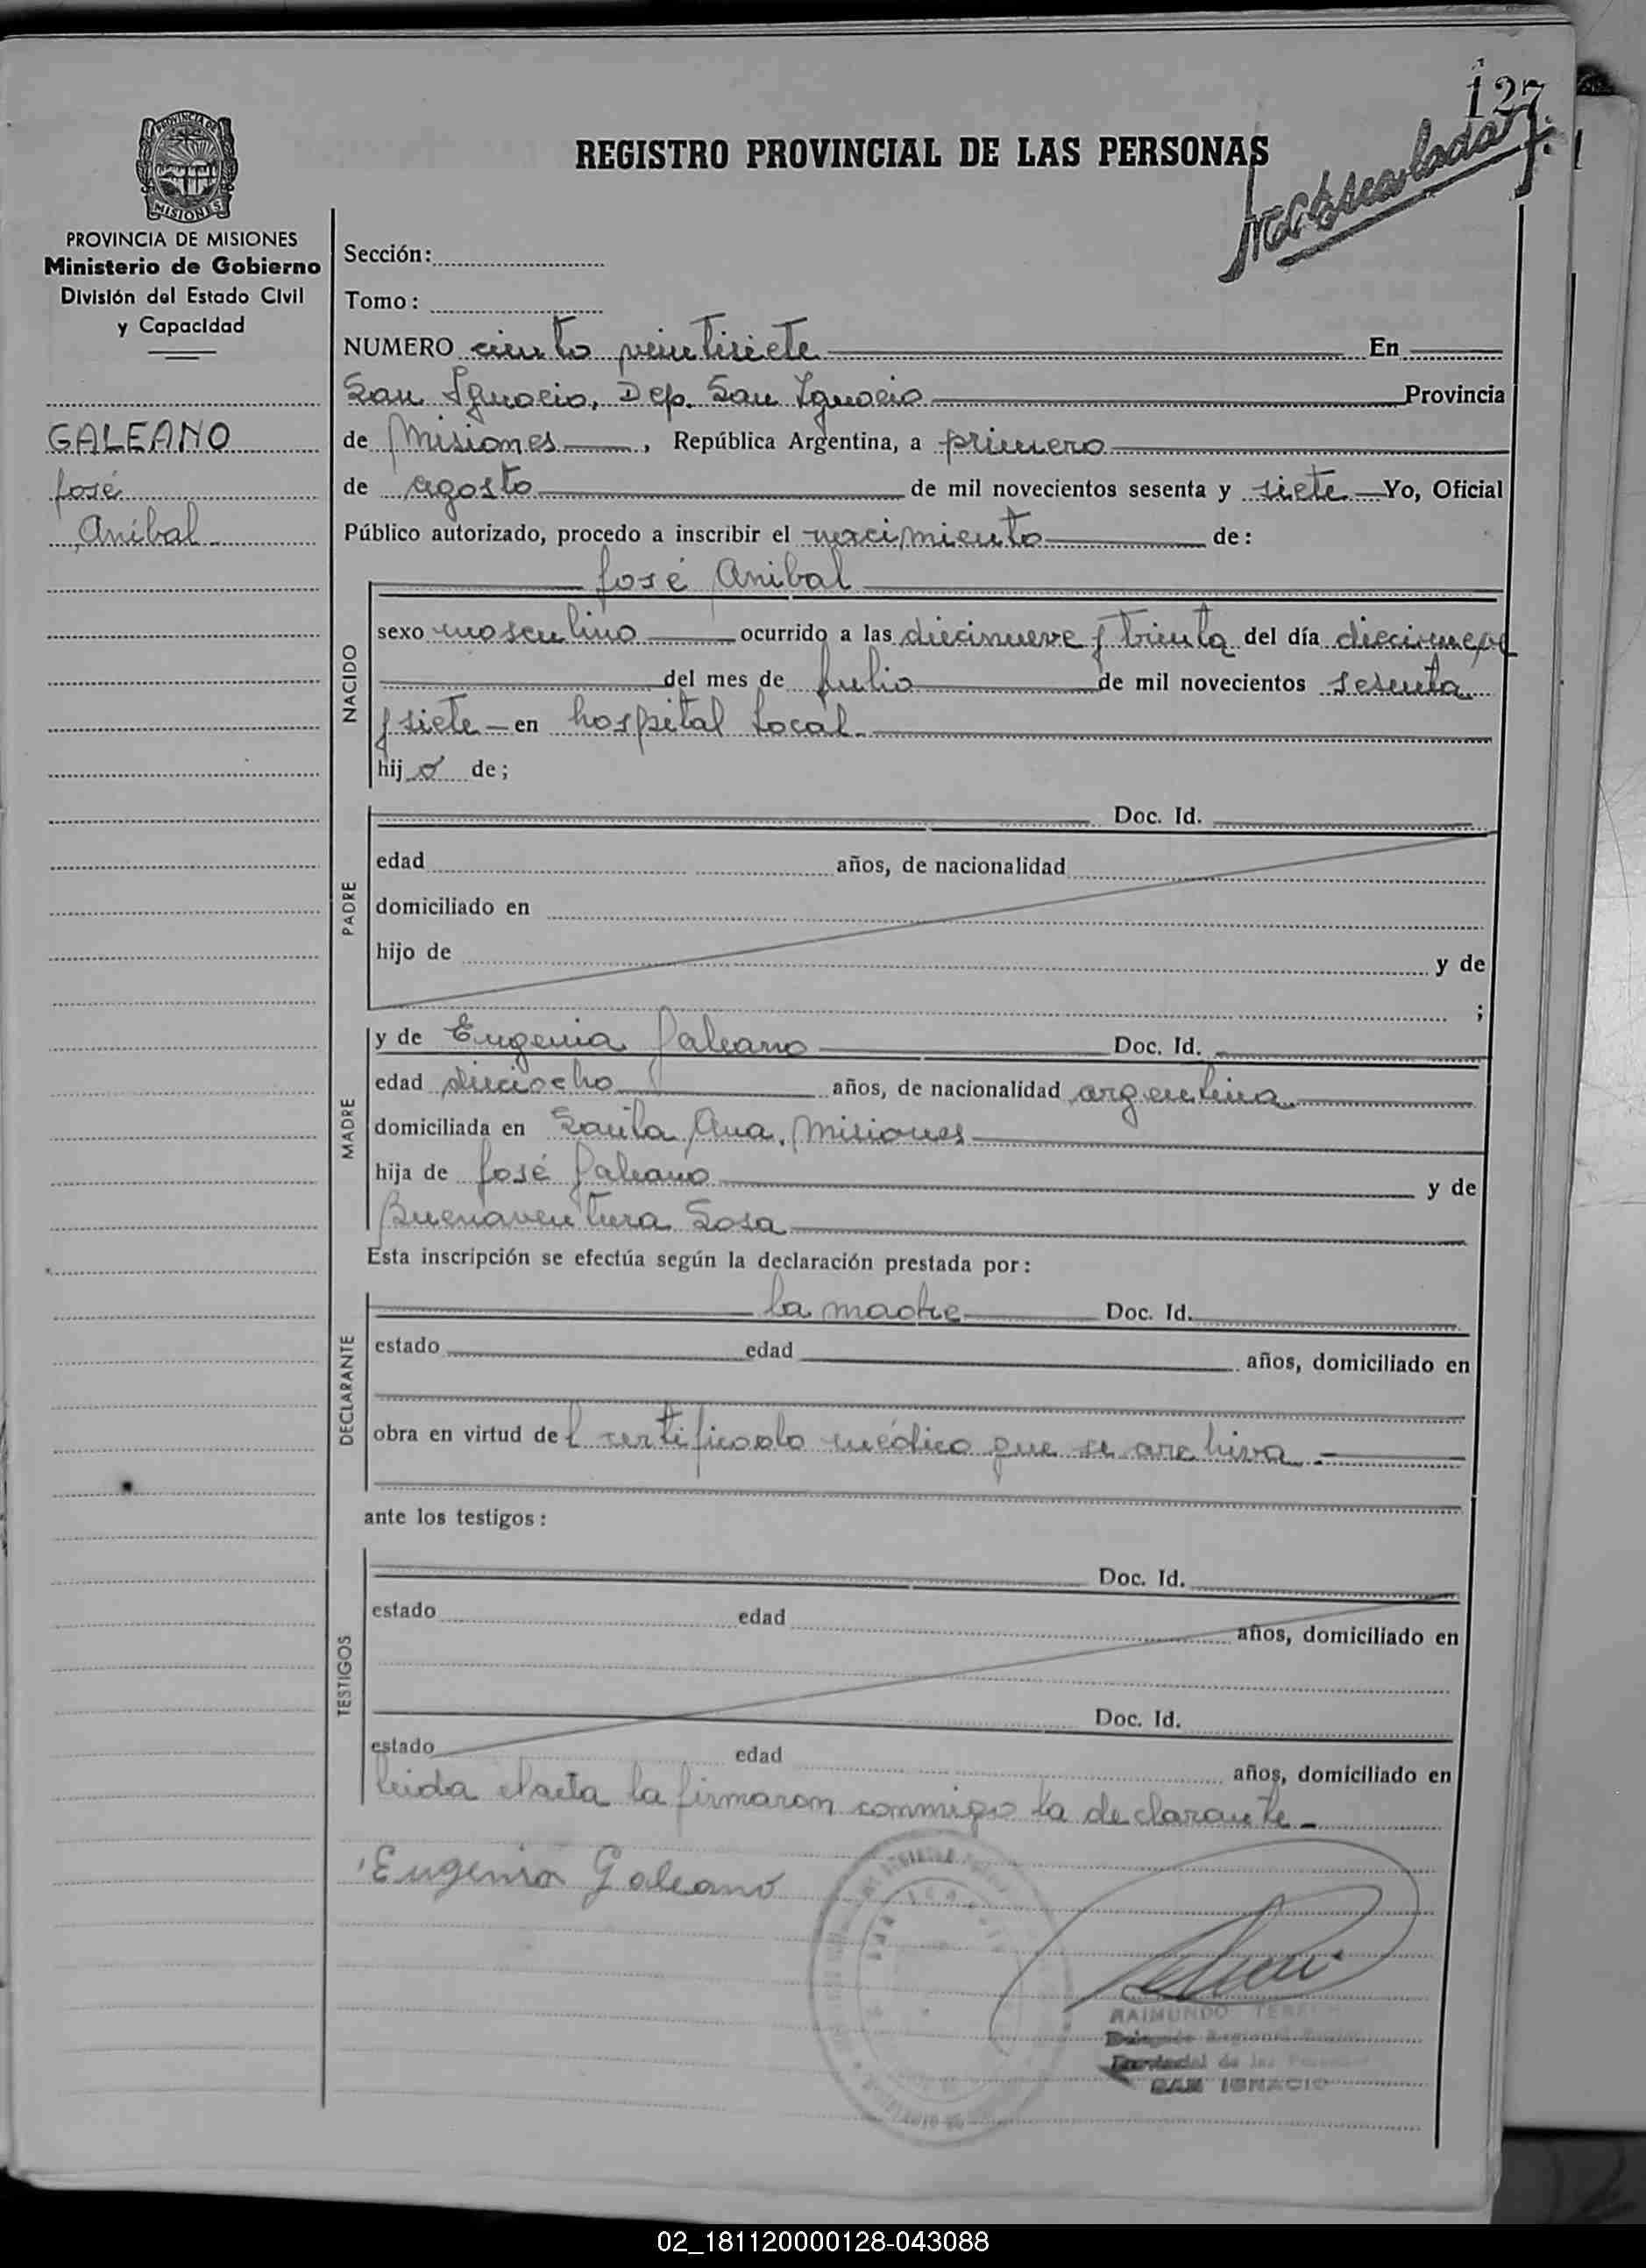 127
REGISTRO PROVINCIAL DE LAS PERSONAS
PROVINCIA DE
MISIONES
PROVINCIA DE MISIONES
Ministerio de Gobierno
División del Estado Civil
y Capacidad
GALEANO
José
Aníbal
Sección:
Tomo:
NUMERO ciento veintisiete En
San Ignacio, Dep. San Ignacio Provincia
de Misiones, República Argentina, a primero
de agosto de mil novecientos sesenta y siete Yo, Oficial
Público autorizado, procedo a inscribir el nacimiento de:
José Anibal
NACIDO
sexo masculino ocurrido a las diecinueve y treinta del día diecinueve
del mes de julio de mil novecientos sesenta
y siete en hospital local.
hijo de;
PADRE
Doc. Id.
edad años, de nacionalidad
domiciliado en
hijo de y de
;
MADRE
y de Eugenia Galeano Doc. Id.
edad dieciocho años, de nacionalidad argentina
domiciliada en Santa Ana, Misiones
hija de José Galeano y de
Buenaventura Sosa
Esta inscripción se efectúa según la declaración prestada por:
DECLARANTE
la madre Doc. Id.
estado edad años, domiciliado en
obra en virtud del certificado médico que se archiva.
ante los testigos:
TESTIGOS
Doc. Id.
estado edad años, domiciliado en
Doc. Id.
estado edad años, domiciliado en
leida el acta la firmaron conmigo la declarante.
Eugenia Galeano
RAIMUNDO
Provincial de las
SAN IGNACIO
02_181120000128-043088